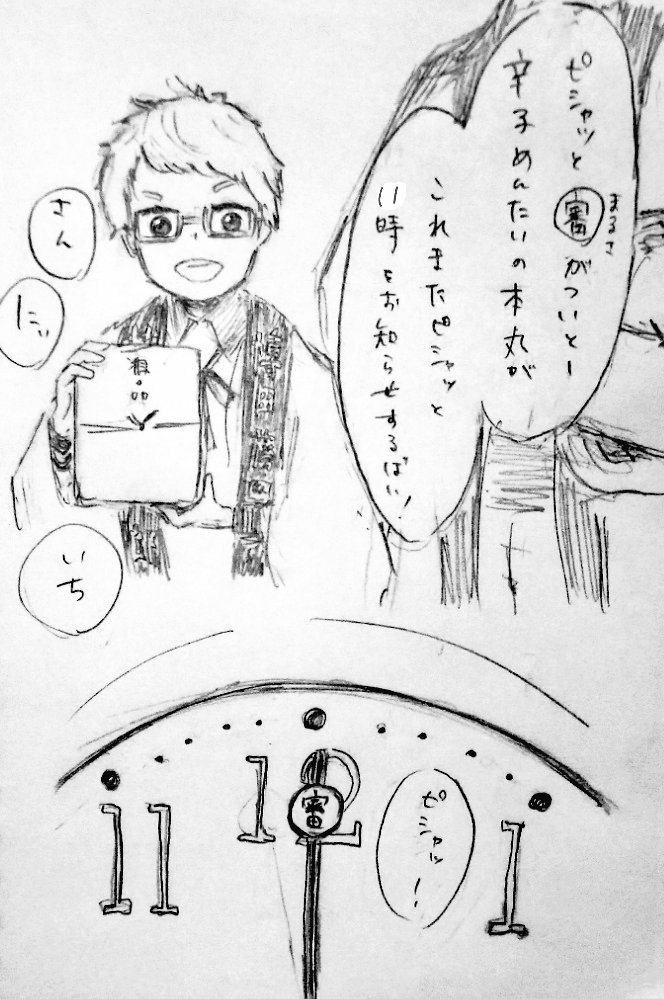 まるさ
ピシャッと
がついとー
辛子めんたいの本丸が
これまたピシャッと
11時をお知らせするばい!
さん
にぃ
いち
粗品
11
12
1
ピシャッ!